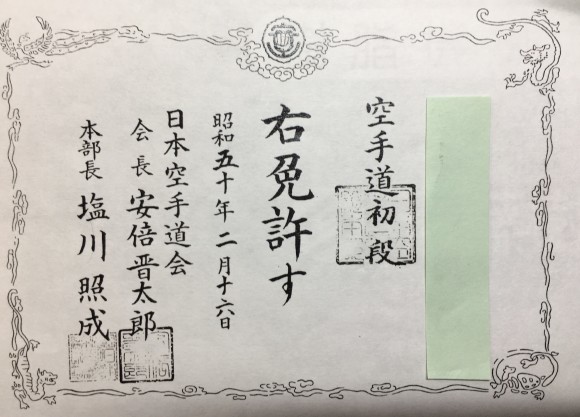 空手道初段
右免許す
昭和五十年二月十六日
日本空手道会
会長 安倍晋太郎
本部長 塩川照成